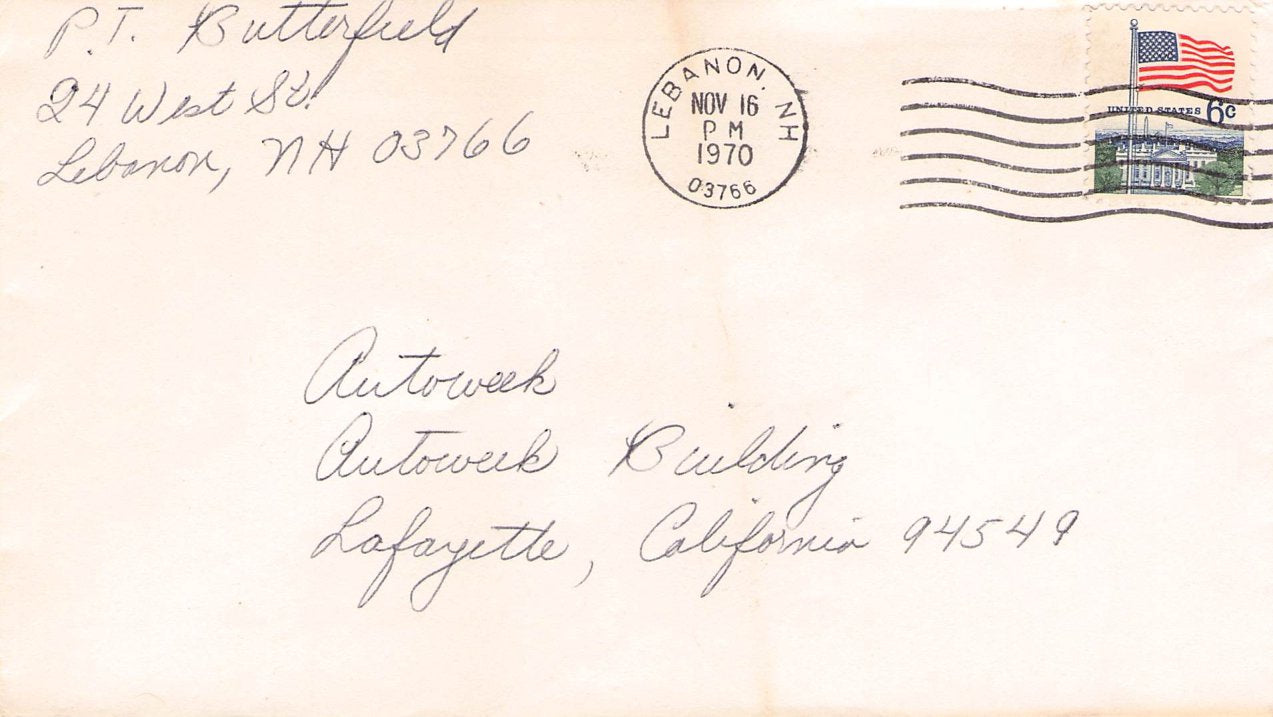 P.T. Butterfield
24 West St.
Lebanon, NH 03766
LEBANON, NH
NOV 16
PM
1970
03766
UNITED STATES 6c
Autoweek
Autoweek Building
Lafayette, California 94549